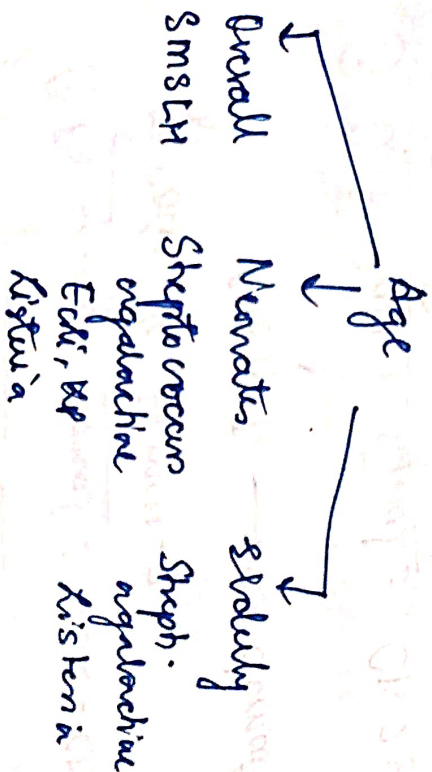 Age
Overall
SMSLH
Neonates
Streptococcus
agalactiae
E coli, Kp
Listeria
Elderly
Strept.
agalactiae
Listeria